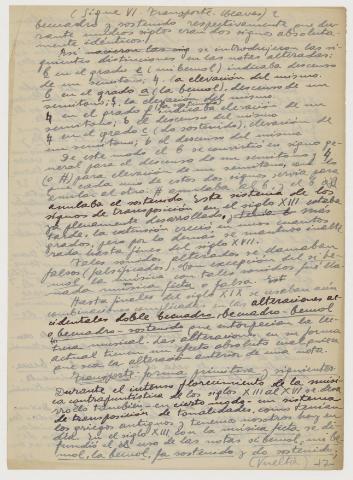 (Sigue VI Transporte, Claves) 2
becuadro y sostenido respectivamente que du-
rante muchos siglos eran dos signos absoluta-
mente idénticos.
se introdujeron las si-
guientes distinciones en las notas alteradas:
b en el grado e (mi bemol) indicaba descenso
de un semitono; ♮ la elevación del mismo.
b en el grado a (la bemol), descenso de un
semitono; ♮ la elevación del mismo
elevación de un
semitono; b el descenso del mismo
♮ en el grado c (do sostenido), elevación de
un semitono; b el descenso del mismo
De este modo el b se convirtió en signo ge-
neral para el descenso de un semitono y ♮
(o #) para elevación de un semitono
cada uno de estos dos signos servía para
anular el otro: # anulaba el b; el b
anulaba el sostenido. Este sistema de los
signos de transposición en el siglo XIII estaba
ya plenamente desarrollado, más
tarde, la extensión creció en unos cuantos
grados, pero por lo demás se mantuvo inalte-
rado hasta fines del siglo XVII.
Tales sonidos alterados se llamaban
falsos (falsificados). Con excepción del si be-
mol, la música con tales sonidos fue lla-
mada musica ficta o falsa.
Hasta finales del siglo XIX se usaban aún
combinaciones en las alteraciones ac-
cidentales doble becuadro, becuadro-bemol
o becuadro-sostenido que entorpecían la lec-
tura musical. Las alteraciones en su forma
actual tienen un efecto absoluto cualquiera
que sea la alteración anterior de una nota.
Transporte forma primitiva y siguientes
Durante el intenso florecimiento de la músi-
ca contrapuntística de los siglos XIII al XVI se desa-
rrolló también en cierto modo un sistema
de transposición de tonalidades, como tenían
los griegos antiguos y tenemos nosotros hoy
día. En el siglo XIII con la música ficta se di-
fundió el uso de las notas si bemol, mi be-
mol, la bemol, fa sostenido y do sostenido;
(Vuelta)